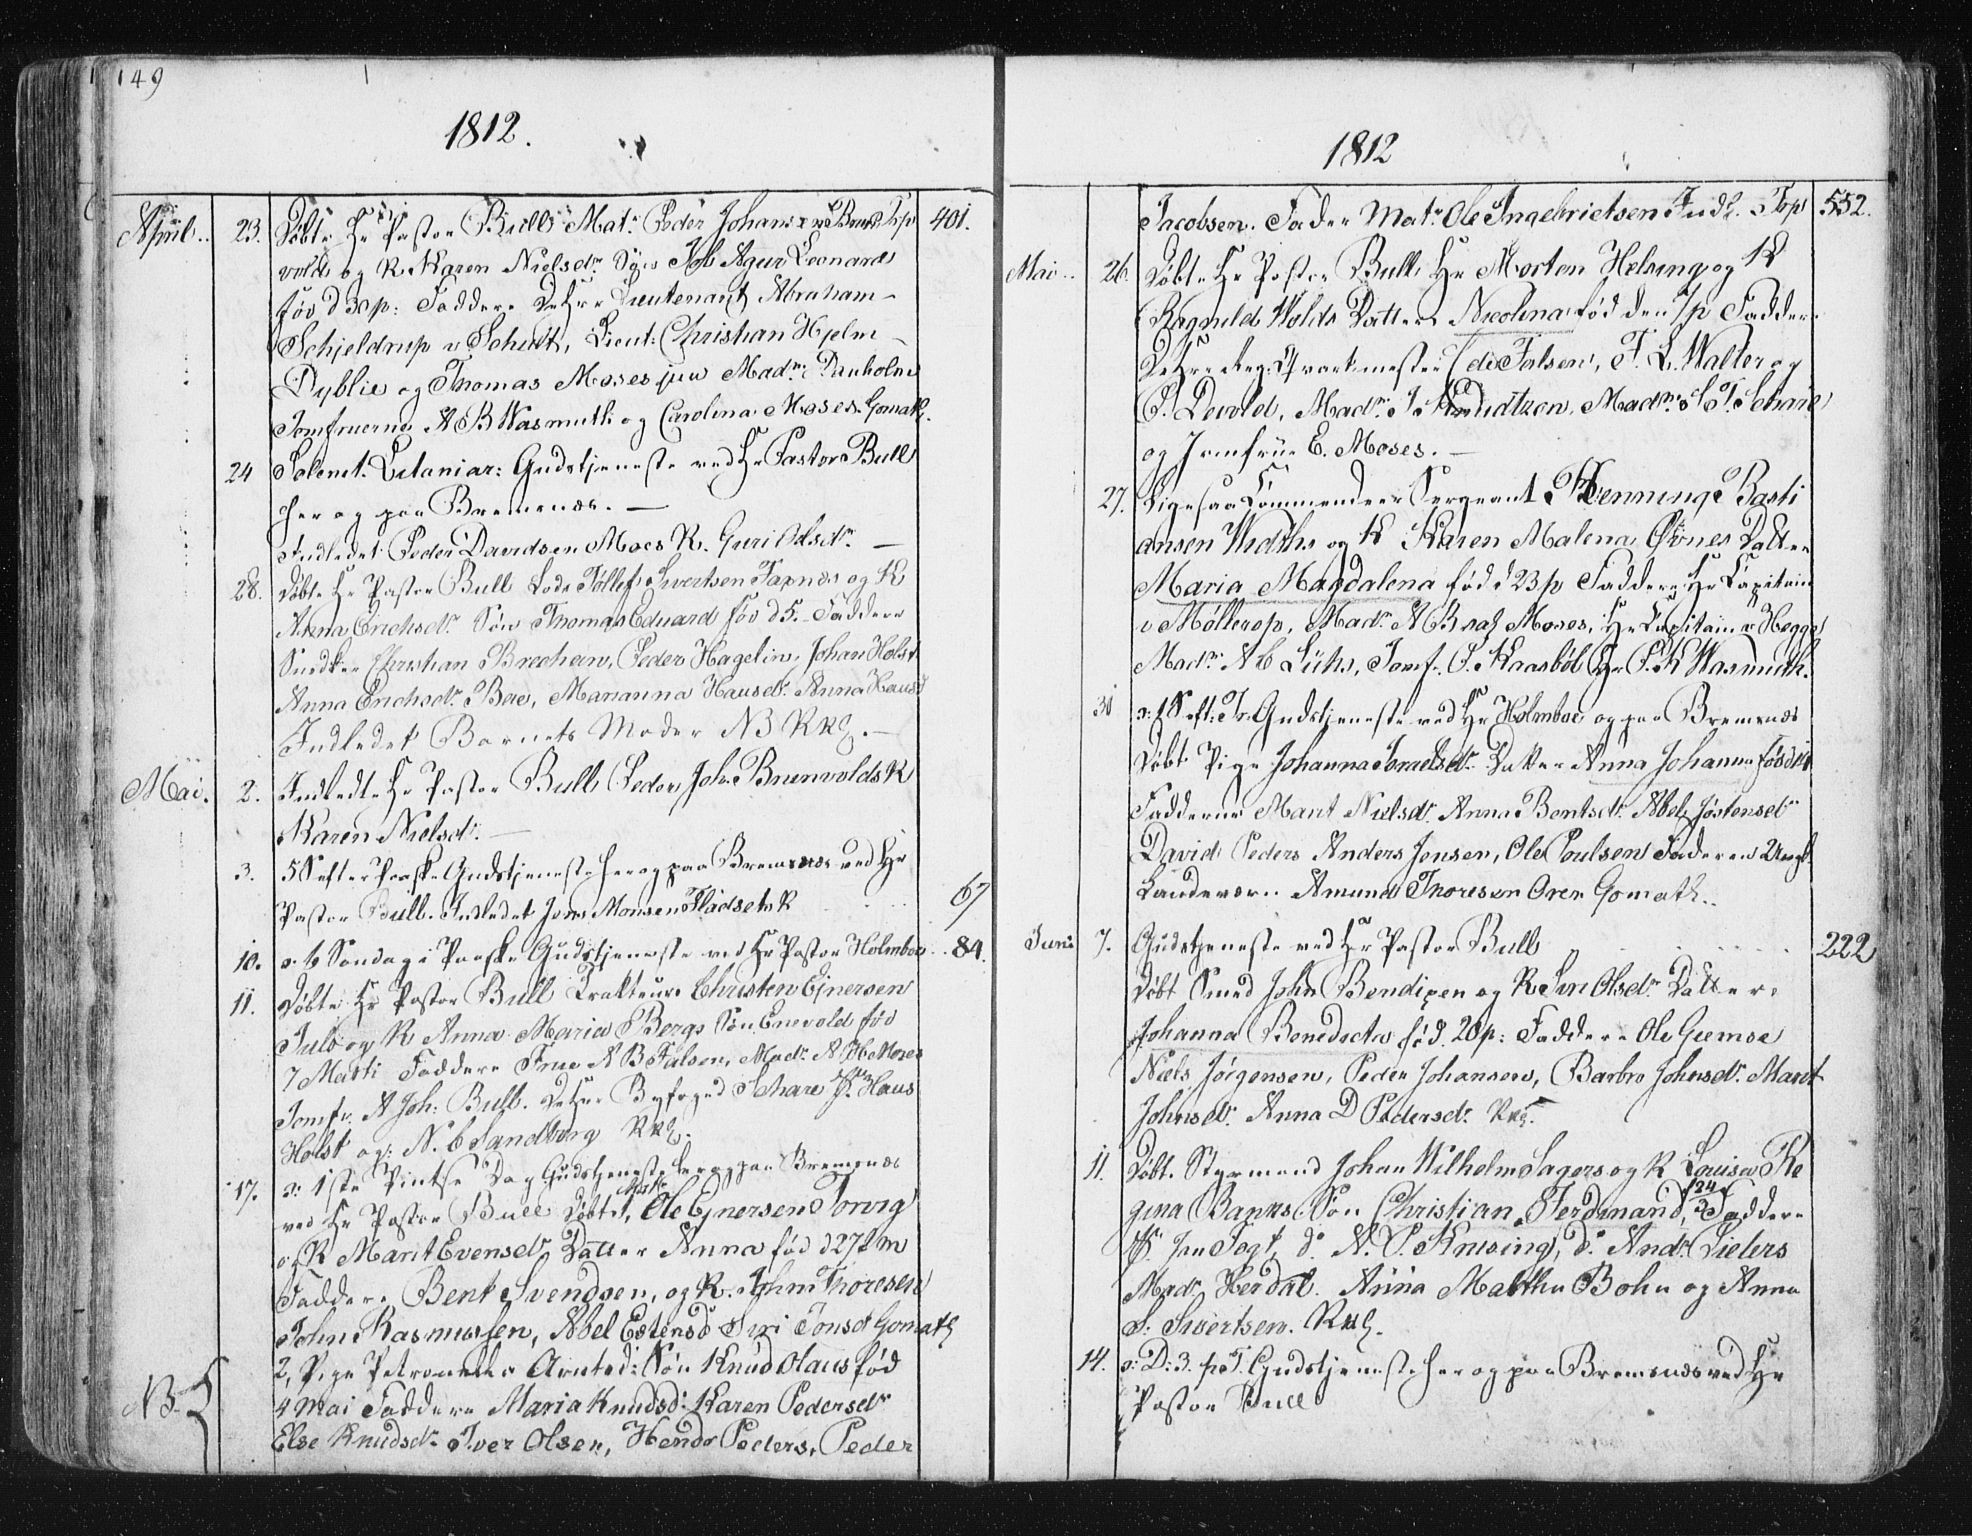 149
1812.
April.. 23. Døbte Hr Pastor Bull Matr. Peder Johansen
vold og K Karen Nielsdr. Søn Job Agur Leonard
Fød d 30 p: Faddere De Hrr Lieutenant Abraham
Schjeldrup v Schult, Lieut: Christian Hjelm
Dyblie og Thomas Moses jun Madm: Danholm
Jomfruerne A B Wasmuth og Carolina Moses. Gomath.
401.
24 Solenit. Litaniar: Gudstjeneste ved Hr Pastor Bull
her og paa Bremsnæs. —
Indledet Peder Davidsen Moes K. Guri Olsdr. —
28. Døbte Hr Pastor Bull Lods Tøllef Sivertsen Faxnæs og K
Anna Erichsdr. Søn Thomas Eduard fød d 5. Faddere
Snedker Christian Brechan, Peder Hagelin, Johan Holst
Anna Erichsdr. Boe, Marianna Hansdr. Anna Hansd
Indledet Barnets Moder NB
Mai. 2. Indledte Hr Pastor Bull Peder Joh. Brunvolds K
Karen Nielsdr. —
3. 5 S efter Paaske Gudstjeneste her og paa Bremsnæs ved Hr
Pastor Bull. Indledet Jons Monsen Fladsets K 67
10. 6 Søndag i Paaske Gudstjeneste ved Hr Pastor Holmboe .. 84.
11. Døbte Hr Pastor Bull Trakteur Christen Ejnersen
Juls og K Anna Maria Bergs Søn Enevold fød
7 Marti Faddere Frue A B Falsen, Madr. A H Moses
Jomfr. A Joh: Bull. De Hrr Byfoged Schare Hans
Holst og: N. b Sandborg
17. 1ste Pintse Dag Gudstjeneste her og paa Bremsnæs
ved Hr Pastor Bull Døbt 1, Ole Ejnersen Torvig
og K Marit Evensdr Datter Anna fød d 27
Faddere Bent Svendsen, og K. John Thoresen
John Rasmussen, Abel Estensd Siri Tønsd Gomath
NB 2, Pige Petronella Arntsd: Søn Knud Olaus fød
4 Mai Faddere Maria Knudsd: Karen Pedersdr
Else Knudsdr. Iver Olsen, Hendr Peders, Peder
1812
Jacobsen. Fader Matr. Ole Ingebrietsen Indl. 552.
Mai.. 26. Døbte Hr Pastor Bull, Hr Morten Helsing og K
Ragnild Wolds Datter Nicolina fød den Faddere
De Hrr Reg: Qvartermester de Falsen, F. L. Walter og
P. Devold, Madm. J. Knudtzon, Madm. Schare
og Jomfrue E. Moses. —
27. Ligesaa Commandeer Sergeant Henning Basti
ansen Widths og K Karen Malena Øvnes Datter
Maria Magdalena fød d 23 p Faddere, Hr Capitain
v Møllerop, Madr. A B Moses, Hr Capitain v Hegge
Madm. A b Lühr, Jomf. P. Kaasbøl Hr P. K Wasmuth.
31 1 S eft: Tr. Gudstjeneste ved Hr Holmboe og paa Bremsnæs
Døbt Pige Johanna Israelsdr. Datter Anna Johanna fød
Fadderne Marit Nielsdr. Anna Bentsdr. Abel Jøstensdr
David Peders Anders Jonsen, Ole Poulsen Faderen Ungk.
Landværn Amund Thoresen Oren Gomath..
Juni 7. Gudstjeneste ved Hr Pastor Bull 222
Døbt Smed John Bendixen og K Siri Olsdr. Datter
Johanna Benedicta fød 20 p: Faddere Ole Giemse
Niels Jørgensen, Peder Johansen, Barbro Johnsdr. Marit
Johnsdr. Anna D Pedersdr.
11. Døbt. Styrmand Johan Wilhelm Sagers og K Louisa Re
gina Banks Søn Christian Ferdinand, Faddere
Hr Jon Fogt, d. N. P. Knusing, d. Andr. Pieters
Madr. Herdal. Anna Martha Bohn og Anna
S. Sivertsen.
14. D: 3. p T. Gudstjeneste her og paa Bremsnæs ved Hr
Pastor Bull